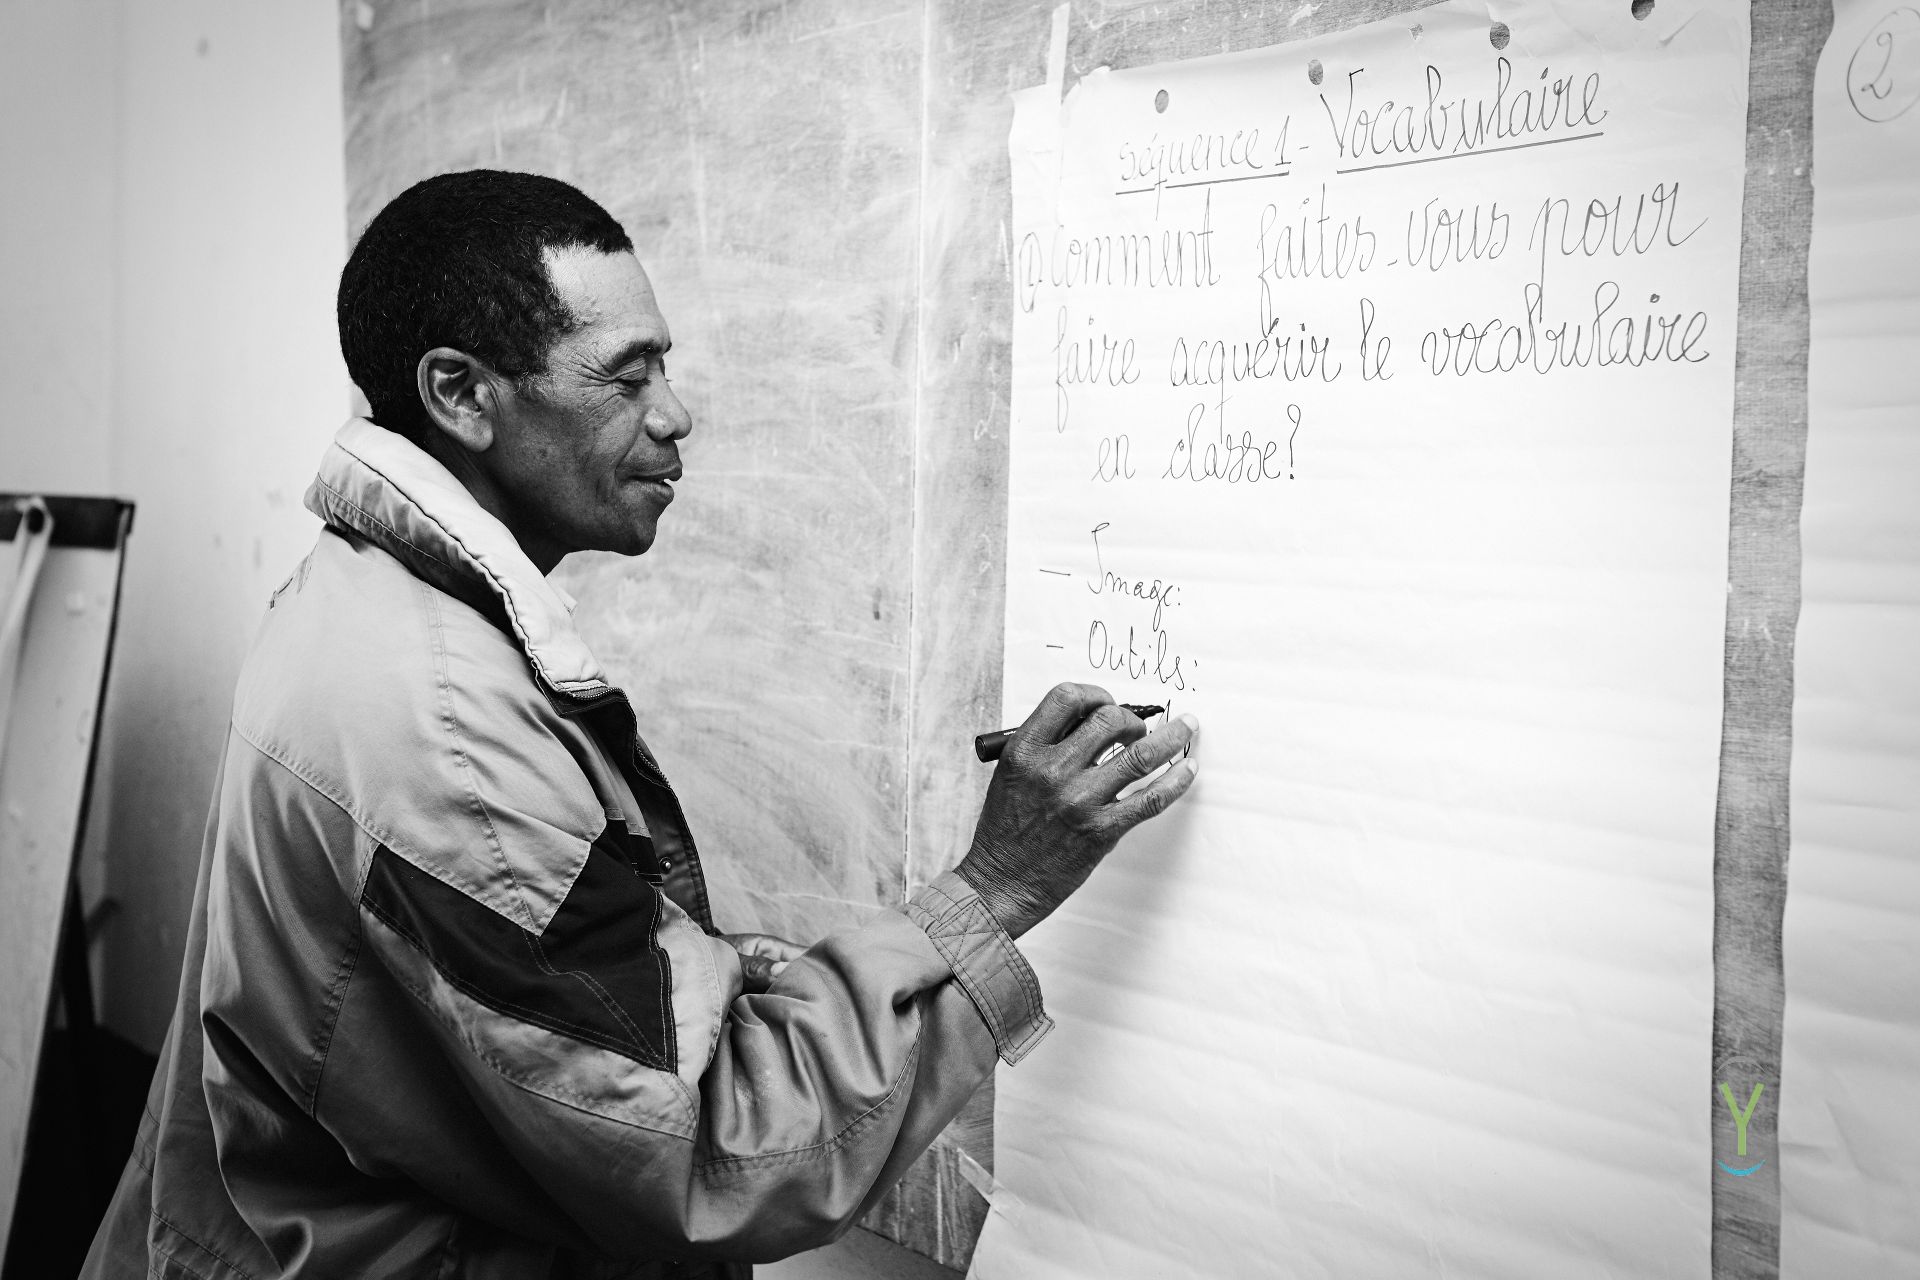 Séquence 1 - Vocabulaire
① Comment faites-vous pour
faire acquérir le vocabulaire
en classe?
- Image:
- Outils:
2
Y